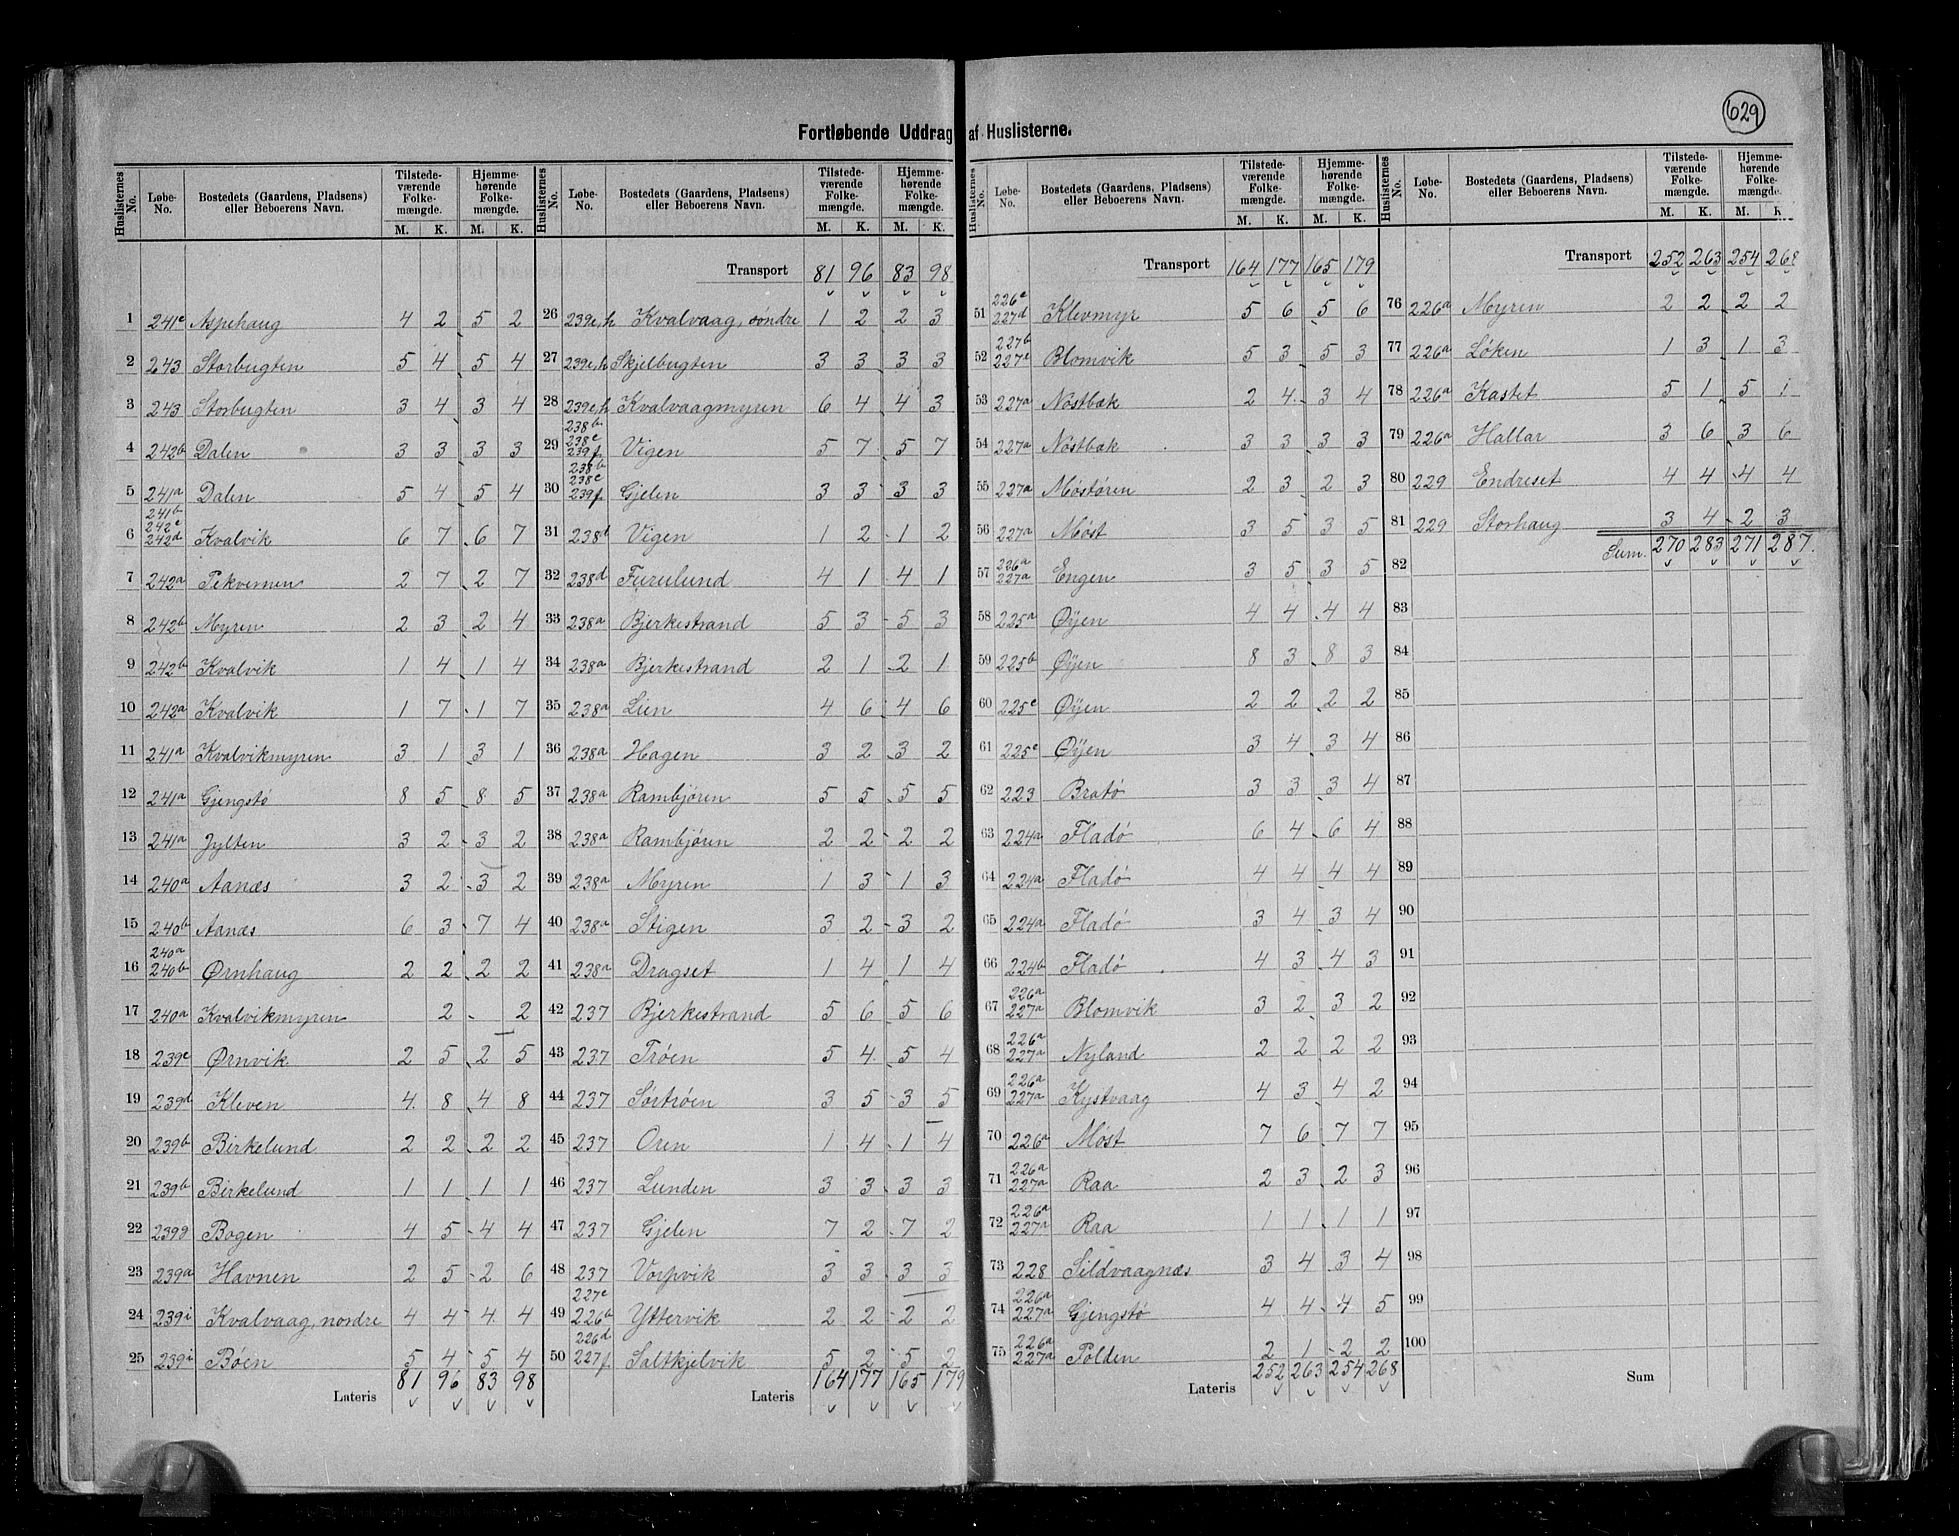 629
Fortløbende Uddrag af Huslisterne.
Huslisternes No. Løbe-No. Bostedets (Gaardens, Pladsens) eller Beboerens Navn. Tilstedeværende Folkemængde. M. K. Hjemmehørende Folkemængde. M. K.
1 241e Aspehaug 4 2 5 2
2 243 Storbugten 5 4 5 4
3 243 Storbugten 3 4 3 4
4 242b Dalen 3 3 3 3
5 241a Dalen 5 4 5 4
6 241b 242e 242d Kvalvik 6 7 6 7
7 242a Tekvernen 2 7 2 7
8 242b Myren 2 3 2 4
9 242b Kvalvik 1 4 1 4
10 242a Kvalvik 1 7 1 7
11 241a Kvalvikmyren 3 1 3 1
12 241a Gjengstø 8 5 8 5
13 241a Jylten 3 2 3 2
14 240a Aanæs 3 2 3 2
15 240b Aanæs 6 3 7 4
16 240a 240b Ørnhaug 2 2 2 2
17 240a Kvalvikmyren 2 2
18 239e Ørnvik 2 5 2 5
19 239d Kleven 4 8 4 8
20 239b Birkelund 2 2 2 2
21 239b Birkelund 1 1 1 1
22 239g Bogen 4 5 4 4
23 239a Havnen 2 5 2 6
24 239i Kvalvaag, nordre 4 4 4 4
25 239i Bøen 5 4 5 4
Lateris 81 96 83 98
Huslisternes No. Løbe-No. Bostedets (Gaardens, Pladsens) eller Beboerens Navn. Tilstedeværende Folkemængde. M. K. Hjemmehørende Folkemængde. M. K.
Transport 81 96 83 98
26 239e,h Kvalvaag, søndre 1 2 2 3
27 239e,h Skjelbugten 3 3 3 3
28 239e,h Kvalvaagmyren 6 4 4 3
29 238b 238e 239f Vigen 5 7 5 7
30 238b 238e 239f Gjelen 3 3 3 3
31 238d Vigen 1 2 1 2
32 238d Furulund 4 1 4 1
33 238a Bjerkestrand 5 3 5 3
34 238a Bjerkestrand 2 1 2 1
35 238a Lien 4 6 4 6
36 238a Hagen 3 2 3 2
37 238a Rambjøren 5 5 5 5
38 238a Rambjøren 2 2 2 2
39 238a Myren 1 3 1 3
40 238a Stigen 3 2 3 2
41 238a Dragset 1 4 1 4
42 237 Bjerkestrand 5 6 5 6
43 237 Trøen 5 4 5 4
44 237 Sørtrøen 3 5 3 5
45 237 Oren 1 4 1 4
46 237 Lunden 3 3 3 3
47 237 Gjelen 7 2 7 2
48 237 Vorpvik 3 3 3 3
49 227e 226b Yttervik 2 2 2 2
50 226d 227f Saltkjelvik 5 2 5 2
Lateris 164 177 165 179
Huslisternes No. Løbe-No. Bostedets (Gaardens, Pladsens) eller Beboerens Navn. Tilstedeværende Folkemængde. M. K. Hjemmehørende Folkemængde. M. K.
Transport 164 177 165 179
51 226e 227d Klevmyr 5 6 5 6
52 227b 227e Blomvik 5 3 5 3
53 227a Nøstbæk 2 4 3 4
54 227a Nøstbæk 3 3 3 3
55 227a Møstøren 2 3 2 3
56 227a Møst 3 5 3 5
57 226a 227a Engen 3 5 3 5
58 225a Øyen 4 4 4 4
59 225b Øyen 8 3 8 3
60 225e Øyen 2 2 2 2
61 225e Øyen 3 4 3 4
62 223 Bratø 3 3 3 4
63 224a Fladø 6 4 6 4
64 224a Fladø 4 4 4 4
65 224a Fladø 3 4 3 4
66 224b Fladø 4 3 4 3
67 226a 227a Blomvik 3 2 3 2
68 226a 227a Nyland 2 2 2 2
69 226a 227a Kystvaag 4 3 4 2
70 226a Møst 7 6 7 7
71 226a 227a Raa 2 3 2 3
72 226a 227a Raa 1 1 1 1
73 228 Sildvaagnæs 3 4 3 4
74 226a 227a Gjengstø 4 4 4 5
75 226a 227a Polden 2 1 2 2
Lateris 252 263 254 268
Huslisternes No. Løbe-No. Bostedets (Gaardens, Pladsens) eller Beboerens Navn. Tilstedeværende Folkemængde. M. K. Hjemmehørende Folkemængde. M. K.
Transport 252 263 254 268
76 226a Myren 2 2 2 2
77 226a Løken 1 3 1 3
78 226a Kastet 5 1 5 1
79 226a Hallar 3 6 3 6
80 229 Endreset 4 4 4 4
81 229 Storhaug 3 4 2 3
82 Sum. 270 283 271 287.
83
84
85
86
87
88
89
90
91
92
93
94
95
96
97
98
99
100
Sum